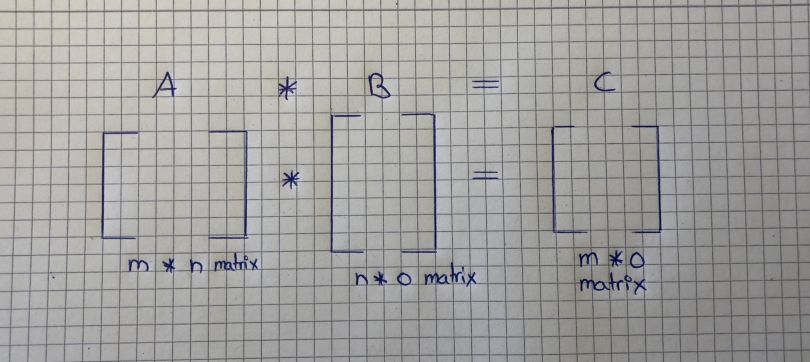 A * B = C
* =
m * n matrix
n * o matrix
m * o
matrix